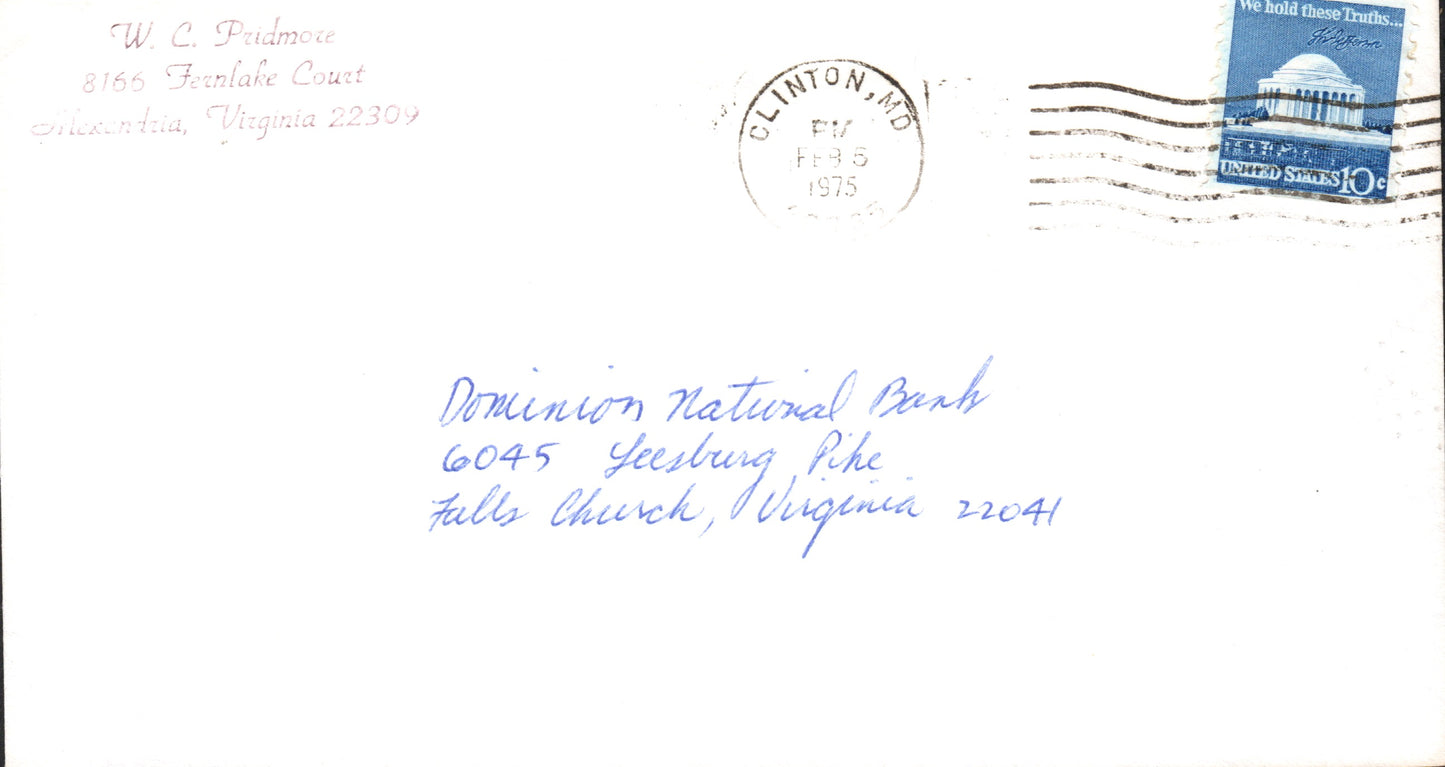 W. C. Pridmore
8166 Fernlake Court
Alexandria, Virginia 22309
CLINTON, MD
PM
FEB 5
1975
We hold these Truths...
UNITED STATES 10c
Dominion National Bank
6045 Leesburg Pike
Falls Church, Virginia 22041